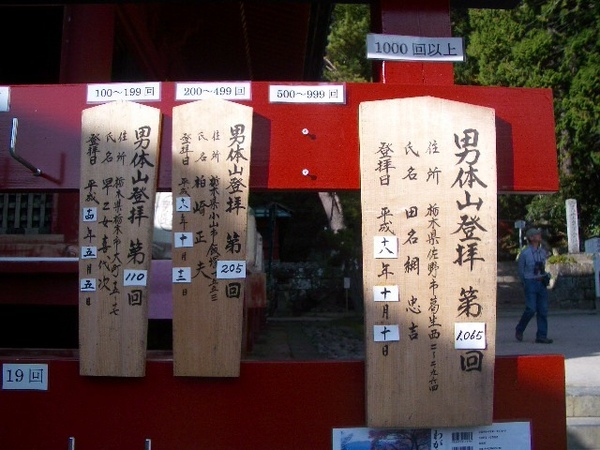 1000回以上
100～199回
200～499回
500～999回
男体山登拝 第110回
住所 栃木県栃木市大町
氏名 早乙女喜代次
登拝日 平成十四年五月五日
男体山登拝 第205回
住所 栃木県小山市飯塚
氏名 柏崎正夫
登拝日 平成十八年十月十三日
男体山登拝 第1,065回
住所 栃木県佐野市葛生西二-二-九-六四
氏名 田名網忠吉
登拝日 平成十八年十月十日
19回